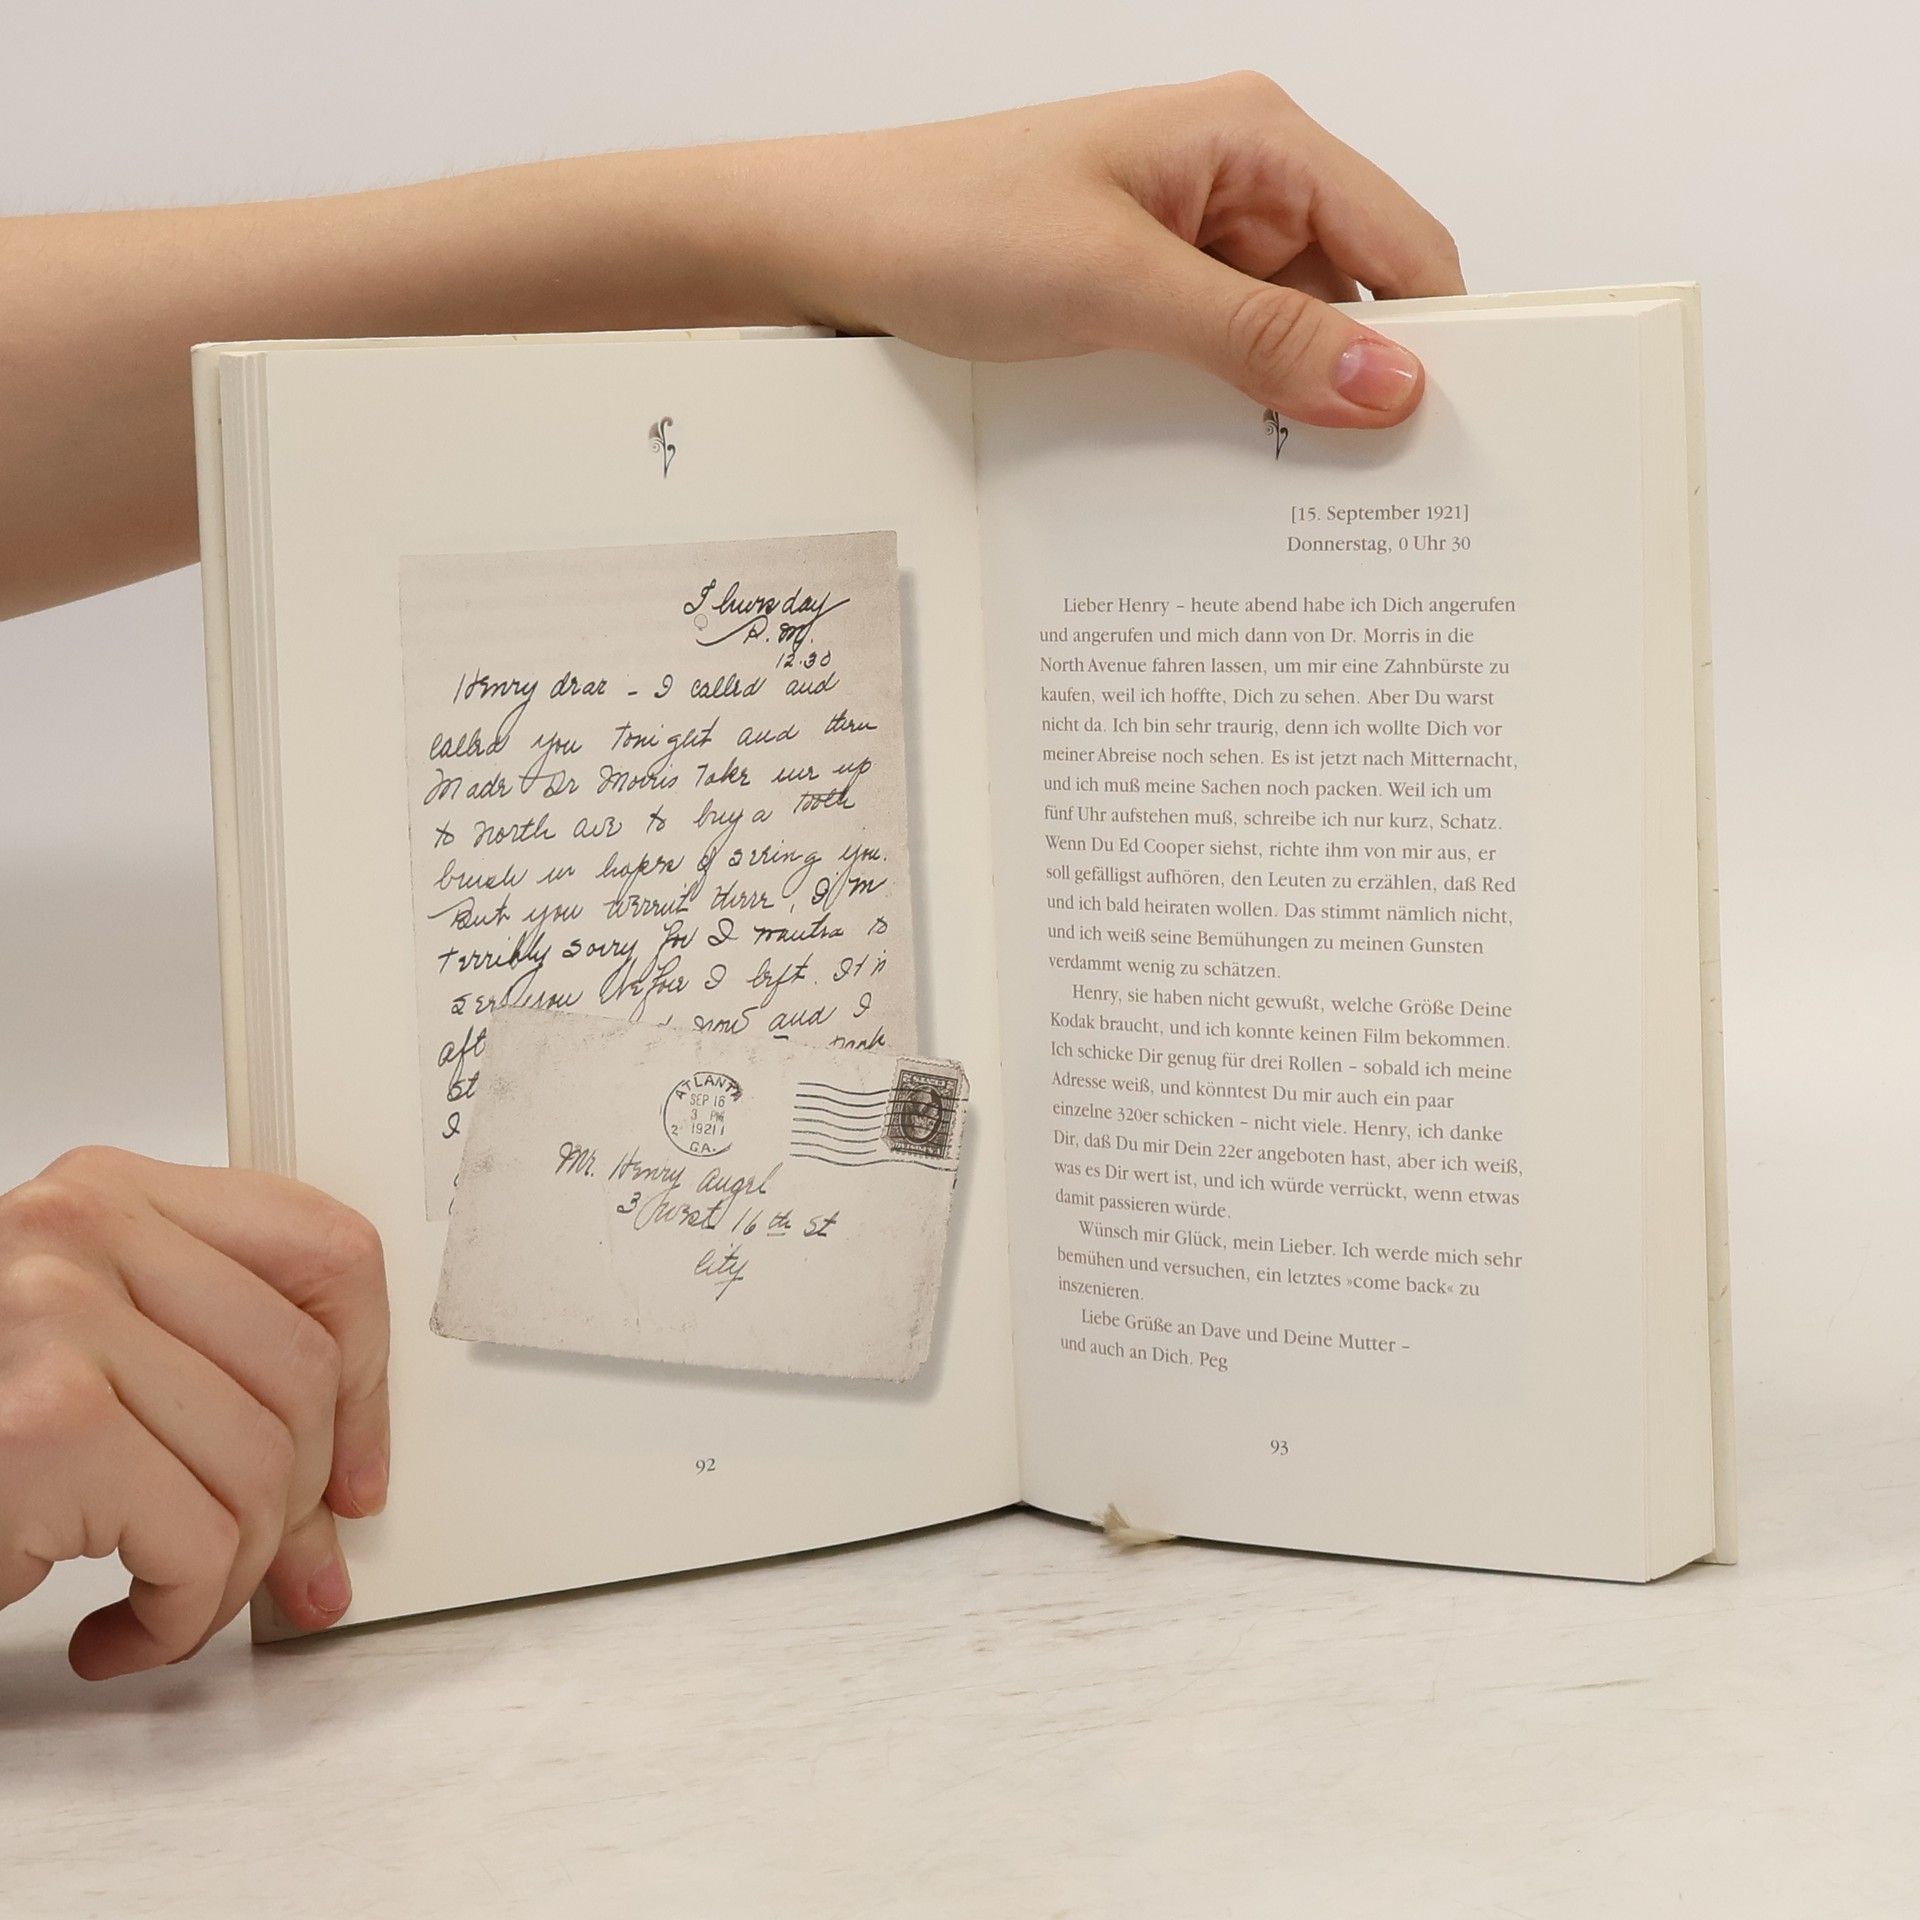 Thursday
P.M.
12.30
Henry dear - I called and
called you tonight and then
Made Dr Morris take me up
to North Ave to buy a tooth
brush in hopes of seeing you.
But you weren't there, I'm
terribly sorry for I wanted to
see you before I left. It is
aft now and I
st
I
ATLANTA
SEP 16
3 PM
1921
GA.
Mr. Henry Angel
3 West 16th St
City
92
[15. September 1921]
Donnerstag, 0 Uhr 30
Lieber Henry – heute abend habe ich Dich angerufen
und angerufen und mich dann von Dr. Morris in die
North Avenue fahren lassen, um mir eine Zahnbürste zu
kaufen, weil ich hoffte, Dich zu sehen. Aber Du warst
nicht da. Ich bin sehr traurig, denn ich wollte Dich vor
meiner Abreise noch sehen. Es ist jetzt nach Mitternacht,
und ich muß meine Sachen noch packen. Weil ich um
fünf Uhr aufstehen muß, schreibe ich nur kurz, Schatz.
Wenn Du Ed Cooper siehst, richte ihm von mir aus, er
soll gefälligst aufhören, den Leuten zu erzählen, daß Red
und ich bald heiraten wollen. Das stimmt nämlich nicht,
und ich weiß seine Bemühungen zu meinen Gunsten
verdammt wenig zu schätzen.
Henry, sie haben nicht gewußt, welche Größe Deine
Kodak braucht, und ich konnte keinen Film bekommen.
Ich schicke Dir genug für drei Rollen – sobald ich meine
Adresse weiß, und könntest Du mir auch ein paar
einzelne 320er schicken – nicht viele. Henry, ich danke
Dir, daß Du mir Dein 22er angeboten hast, aber ich weiß,
was es Dir wert ist, und ich würde verrückt, wenn etwas
damit passieren würde.
Wünsch mir Glück, mein Lieber. Ich werde mich sehr
bemühen und versuchen, ein letztes »come back« zu
inszenieren.
Liebe Grüße an Dave und Deine Mutter –
und auch an Dich. Peg
93